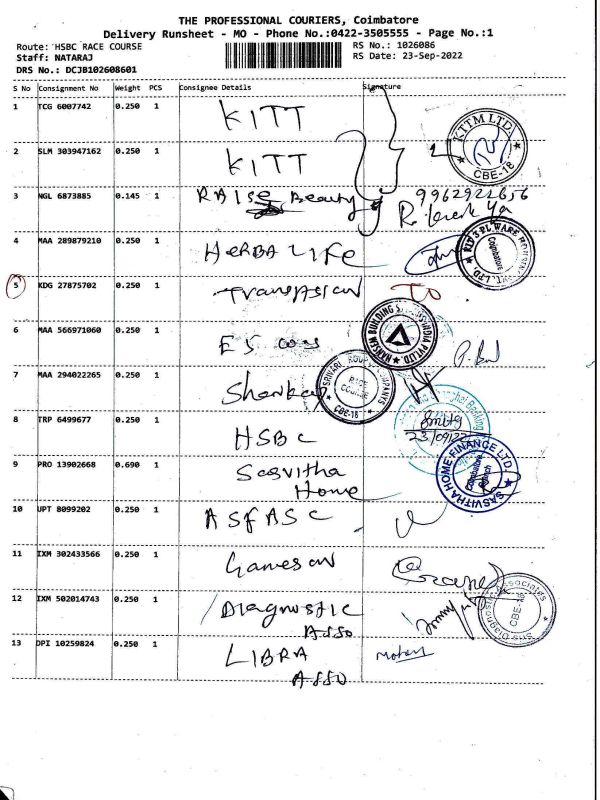 THE PROFESSIONAL COURIERS, Coimbatore
Delivery Runsheet - MO - Phone No.:0422-3505555 - Page No.:1
Route: HSBC RACE COURSE
RS No.: 1026086
Staff: NATARAJ
RS Date: 23-Sep-2022
DRS No.: DCJB102608601
S No Consignment No Weight PCS Consignee Details Signature
1 TCG 6007742 0.250 1 KITT
KTTM LTD. CBE-18
2 SLM 303947162 0.250 1 KITT
3 NGL 6873885 0.145 1 RAISE Beauty 9962922656
4 MAA 289879210 0.250 1 HERBALIFE
Coimbatore
5 KDG 27875702 0.250 1 TO
6 MAA 566971060 0.250 1
7 MAA 294022265 0.250 1
RACE COURSE
CBE-18
8 TRP 6499677 0.250 1 HSBC
23/09/22
9 PRO 13902668 0.690 1 Sasvitha
Home
SASVITHA HOME FINANCE LTD.
10 UPT 8099202 0.250 1 ASFASC
11 IXM 302433566 0.250 1
12 IXM 502014743 0.250 1 DIAGNOSTIC
ASSO
Sris Diagnostic Associates CBE-18
13 DPI 10259824 0.250 1 LIBRA Mohan
ASSO